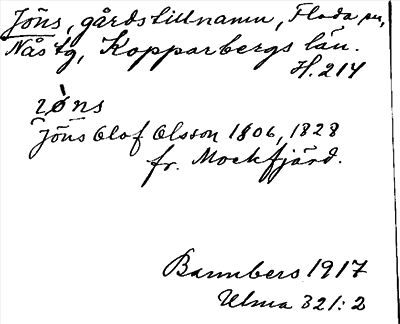 Jöns, gårdstillnamn, Floda sn,
Nås tg, Kopparbergs län.
H. 214
Jöns Olof Olsson 1806, 1828
fr. Mockfjärd.
Bannbers 1917
Ulma 321:2